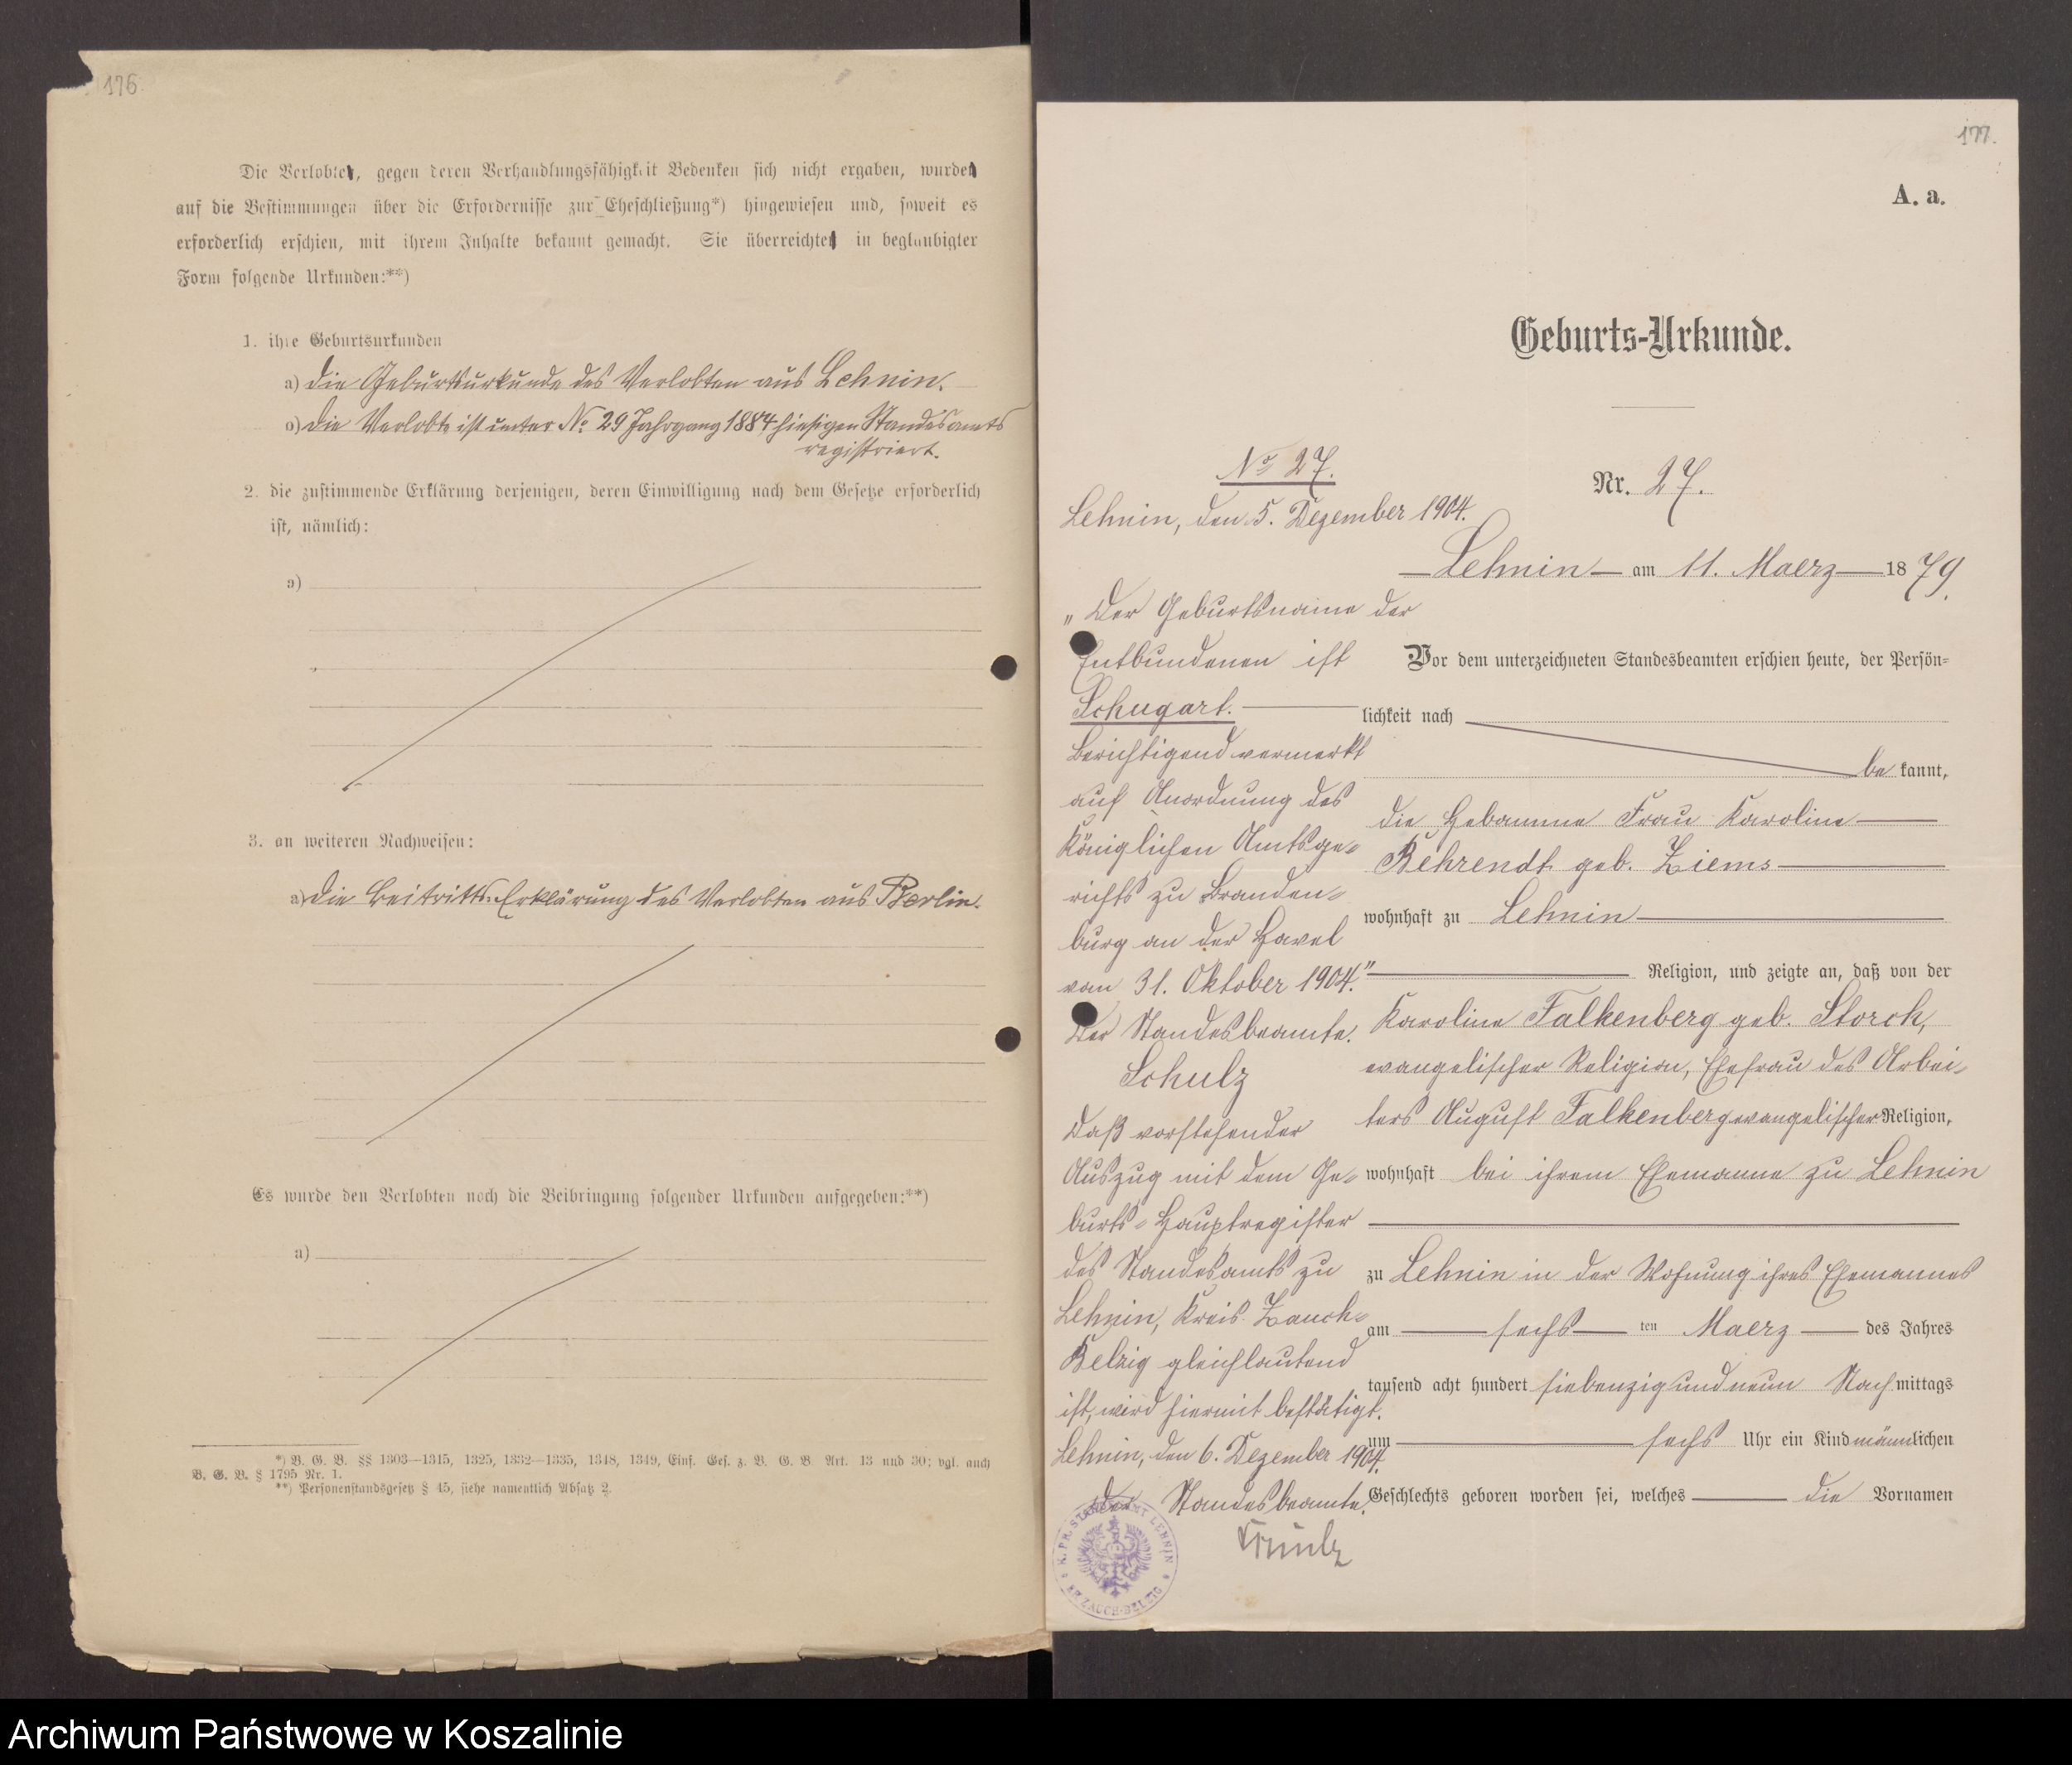 176.
Die Verlobten, gegen deren Verhandlungsfähigkeit Bedenken sich nicht ergaben, wurden
auf die Bestimmungen über die Erfordernisse zur Eheschließung*) hingewiesen und, soweit es
erforderlich erschien, mit ihrem Inhalte bekannt gemacht. Sie überreichten in beglaubigter
Form folgende Urkunden:**)
1. ihre Geburtsurkunden
a) die Geburtsurkunde des Verlobten aus Lehnin.
b) die Verlobte ist unter No 29 Jahrgang 1884 hiesigen Standesamts
registriert.
2. die zustimmende Erklärung derjenigen, deren Einwilligung nach dem Gesetze erforderlich
ist, nämlich:
a)
3. an weiteren Nachweisen:
a) die Beitritts-Erklärung des Verlobten aus Berlin.
Es wurde den Verlobten noch die Beibringung folgender Urkunden aufgegeben:**)
a)
*) B. G. B. §§ 1303—1315, 1325, 1332—1335, 1348, 1349, Einf. Ges. z. B. G. B. Art. 13 und 30; vgl. auch
B. G. B. § 1795 Nr. 1.
**) Personenstandsgesetz § 45, siehe namentlich Absatz 2.
177.
A. a.
Geburts-Urkunde.
No 27.
Lehnin, den 5. Dezember 1904.
„Der Geburtsname der
Entbundenen ist
Schugart.
Berichtigend vermerkt
auf Anordnung des
Königlichen Amtsge-
richts zu Branden-
burg an der Havel
vom 31. Oktober 1904."
Der Standesbeamte.
Schulz
Daß vorstehender
Auszug mit dem Ge-
burts-Hauptregister
des Standesamts zu
Lehnin, Kreis Zauch-
Belzig gleichlautend
ist, wird hiermit bestätigt.
Lehnin, den 6. Dezember 1904.
Der Standesbeamte.
Schulz
K. PR. STANDESAMT LEHNIN
KR. ZAUCH-BELZIG
Nr. 27.
Lehnin am 11. Maerz 1879.
Vor dem unterzeichneten Standesbeamten erschien heute, der Persön-
lichkeit nach
be kannt,
die Hebamme Frau Karoline
Behrendt geb. Ziems
wohnhaft zu Lehnin
Religion, und zeigte an, daß von der
Karoline Falkenberg geb. Storch,
evangelischer Religion, Ehefrau des Arbei-
ters August Falkenberg evangelischer Religion,
wohnhaft bei ihrem Ehemanne zu Lehnin
zu Lehnin in der Wohnung ihres Ehemannes
am sechs ten Maerz des Jahres
tausend acht hundert siebenzig und neun Nach mittags
um sechs Uhr ein Kind männlichen
Geschlechts geboren worden sei, welches die Vornamen
Archiwum Państwowe w Koszalinie